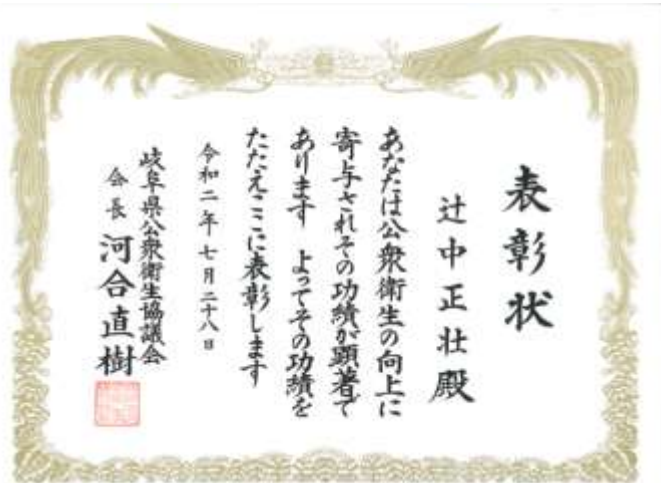 表彰状
辻中正壮殿
あなたは公衆衛生の向上に
寄与されその功績が顕著で
あります よってその功績を
たたえここに表彰します
令和二年七月二十八日
岐阜県公衆衛生協議会
会長 河合直樹